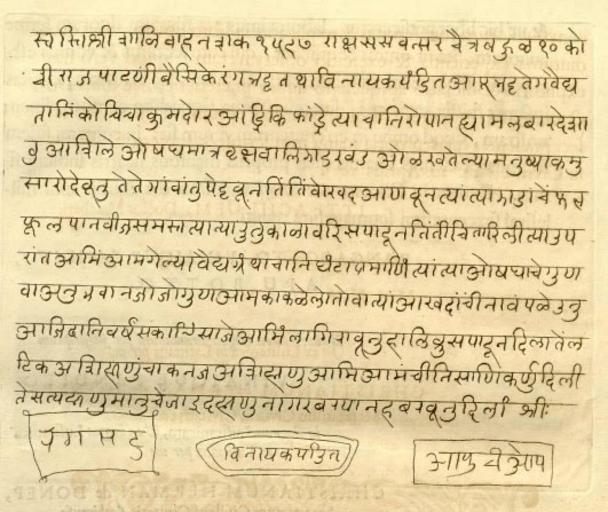 स्वस्ति श्री शालिवाहन शक १५९७ राक्षस सवत्सर चैत्र बहुळ १० को
ची राज पाटणी वैसिके रंग भट्ट तथा विनायक पंडित आपु भट्ट ते गे वैद्य
तानिं कोचिचा कुमदोर आंद्रि कि त्याचा निरोपान ह्या मलबार देशा
तु आशिले ओषध मात्र वृक्ष वालि झाड खंड ओळखतेल्या मनुष्याकमु
सारो देवूनु ते ते गांवांतु पेटवून तिं तिं वोखद आणवून त्यांत्या झाडांचें फळ
फूल पान वीज समस्त त्या त्या उतु काळा वरि सपाटून तिंतीं चितारिली त्या उप
रांत आमिं आमगेल्या वैद्य ग्रंथाचा निघंटा प्रमाणिं त्यांत्या ओषधाचे गुण
वा अनुभवान जो जो गुण आमका कळेला तो वा त्यां आखदांची नावं पळेउनु
आजि दोनि वर्षं सकाणि सांजे आमिं लागिं रावूनु हा लिवुस पाटून दिला तें ल
टिक अशि म्हणुंचाक नज अशि म्हणु आमि आमचीं निसाणि कर्णु दिली
ते सत्य म्हणु मानुचें जाइ म्हणु नागर बरपान बरवूनु दिलां श्रीः
रंग भट विनायक पंडित आपु